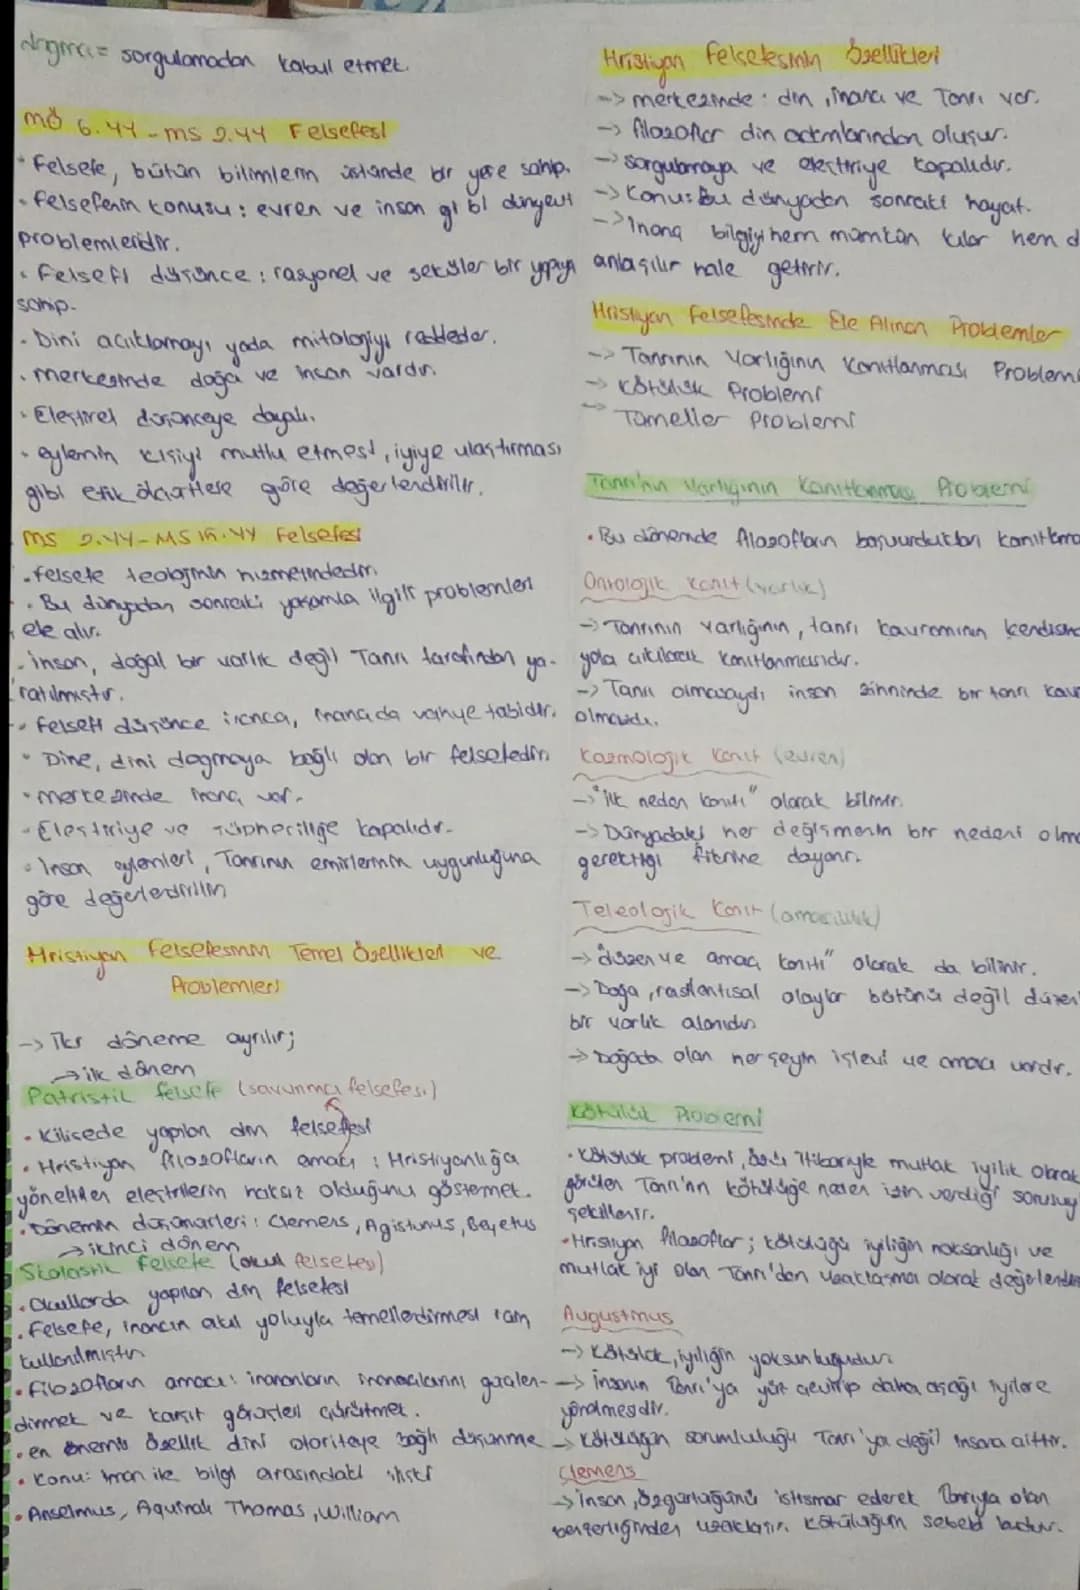 dogma = sorgulamadan kabul etmek.
MÖ 6.YY - MS 2.YY Felsefesi
• Felsefe, bütün bilimlerin üstünde bir yere sahip.
• Felsefenin konusu: evren ve insan gibi dünyevi
problemleridir.
• Felsefi düşünce: rasyonel ve seküler bir yapıya
sahip.
• Dini açıklamayı yada mitolojiyi reddeder.
• merkezinde doğa ve insan vardır.
• Eleştirel düşünceye dayalı.
• eylemin kişiyi mutlu etmesi, iyiye ulaştırması
gibi etik ölçütlere göre değerlendirilir.
MS 2.YY - MS 15.YY Felsefesi
• felsefe teolojinin hizmetindedir.
• Bu dünyadan sonraki yaşamla ilgili problemleri
ele alır.
• insan, doğal bir varlık değil Tanrı tarafından ya-
ratılmıştır.
• Felsefi düşünce inanca, inançda vahye tabidir.
• Dine, dini dogmaya bağlı olan bir felsefedir.
• merkezinde inanç var.
• Eleştiriye ve şüpheciliğe kapalıdır.
• İnsan eylemleri, Tanrının emirlerinin uygunluğuna
göre değerlendirilir
Hristiyan Felsefesinin Temel Özellikleri ve
Problemleri
-> İki döneme ayrılır;
-> ilk dönem
Patristik felsefe (savunma felsefesi)
• Kilisede yapılan din felsefesi
• Hristiyan filozofların amacı: Hristiyanlığa
yöneltilen eleştirilerin haksız olduğunu göstermek.
• Dönemin düşünürleri: Clemens, Agistunus,
-> ikinci dönem
Skolastik Felsefe (okul felsefesi)
• Okullarda yapılan din felsefesi
• Felsefe, inancın akıl yoluyla temellendirmesi için
kullanılmıştır
• Filozofların amacı: inananların inançlarını güçlen-
dirmek ve karşıt görüşleri çürütmek.
• en önemli özellik dini otoriteye bağlı düşünme
• Konu: iman ile bilgi arasındaki ilişki
• Anselmus, Aquinalı Thomas, William
Hristiyan Felsefesinin Özellikleri
-> merkezinde: din, inanç ve Tanrı var.
-> filozoflar din adamlarından oluşur.
-> sorgulamaya ve eleştiriye kapalıdır.
-> Konu: Bu dünyadan sonraki hayat.
-> İnanç bilgiyi hem mümkün kılar hem d
anlaşılır hale getirir.
Hristiyan Felsefesinde Ele Alınan Problemler
-> Tanrının Varlığının Kanıtlanması Problemi
-> Kötülük Problemi
-> Tümeller Problemi
Tanrı'nın Varlığının Kanıtlanması Problemi
• Bu dönemde filozofların başvurdukları
Ontolojik Kanıt (varlık)
-> Tanrının varlığının, tanrı kavramının
yola çıkılarak kanıtlanmasıdır.
-> Tanrı olmasaydı insan zihninde bir tanrı
olmazdı.
Kozmolojik Kanıt (evren)
-> "ilk neden kanıtı" olarak bilinir.
-> Dünyadaki her değişmenin bir nedeni
gerektiği fikrine dayanır.
Teleolojik Kanıt (amaçlılık)
-> "düzen ve amaç kanıtı" olarak da bilinir.
-> Doğa, rastlantısal olaylar bütünü değil
bir varlık alanıdır
-> Doğada olan her şeyin işlevi ve amacı vardır.
Kötülük Problemi
• Kötülük problemi, özü itibariyle mutlak iyilik olarak
görülen Tanrı'nın kötülüğe neden izin verdiği
şekillenir.
• Hristiyan filozoflar; kötülüğü iyiliğin noksanlığı ve
mutlak iyi olan Tanrı'dan uzaklaşma olarak
Augustinus
-> Kötülük, iyiliğin yoksunluğudur.
-> insanın Tanrı'ya yüz çevirip daha aşağı iyilere
yönelmesidir.
-> Kötülüğün sorumluluğu Tanrı'ya değil insana aittir.
Clemens
-> İnsan, özgürlüğünü istismar ederek Tanrıyla olan
benzerliğinden uzaklaşır. Kötülüğün sebebi budur.